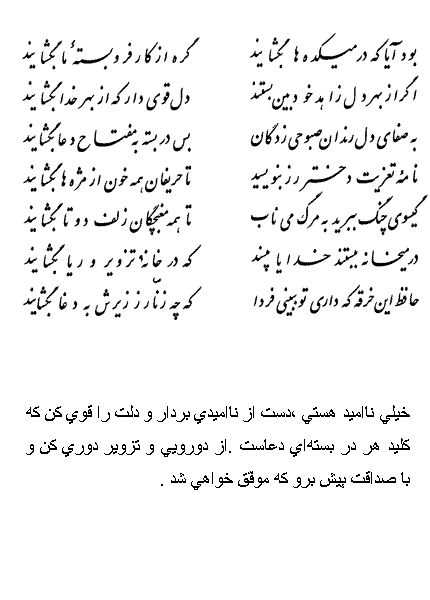 بود آیا که در میکده ها بگشایند گره از کار فروبستهٔ ما بگشایند
اگر از بهر دل زاهد خودبین بستند دل قوی دار که از بهر خدا بگشایند
به صفای دل رندان صبوحی زدگان بس در بسته به مفتاح دعا بگشایند
نامهٔ تعزیت دختر رز بنویسید تا حریفان همه خون از مژه ها بگشایند
گیسوی چنگ ببرید به مرگ می ناب تا همه مغبچگان زلف دو تا بگشایند
در میخانه ببستند خدایا مپسند که در خانهٔ تزویر و ریا بگشایند
حافظ این خرقه که داری تو ببینی فردا که چه زنار ز زیرش به دغا بگشایند
خيلي نااميد هستي ،دست از نااميدي بردار و دلت را قوي کن که
کليد هر در بسته‌اي دعاست .از دورويي و تزوير دوري کن و
با صداقت پيش برو که موفق خواهي شد .